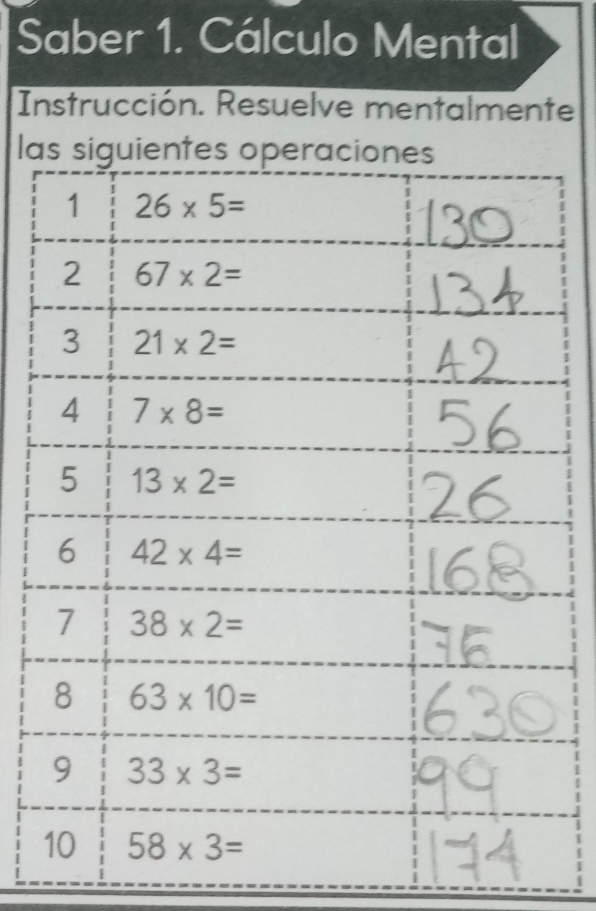 Saber 1. Cálculo Mental
Instrucción. Resuelve mentalmente
las siguientes operaciones
1 26 x 5= 130
2 67 x 2= 134
3 21 x 2= 42
4 7 x 8= 56
5 13 x 2= 26
6 42 x 4= 168
7 38 x 2= 76
8 63 x 10= 630
9 33 x 3= 99
10 58 x 3= 174